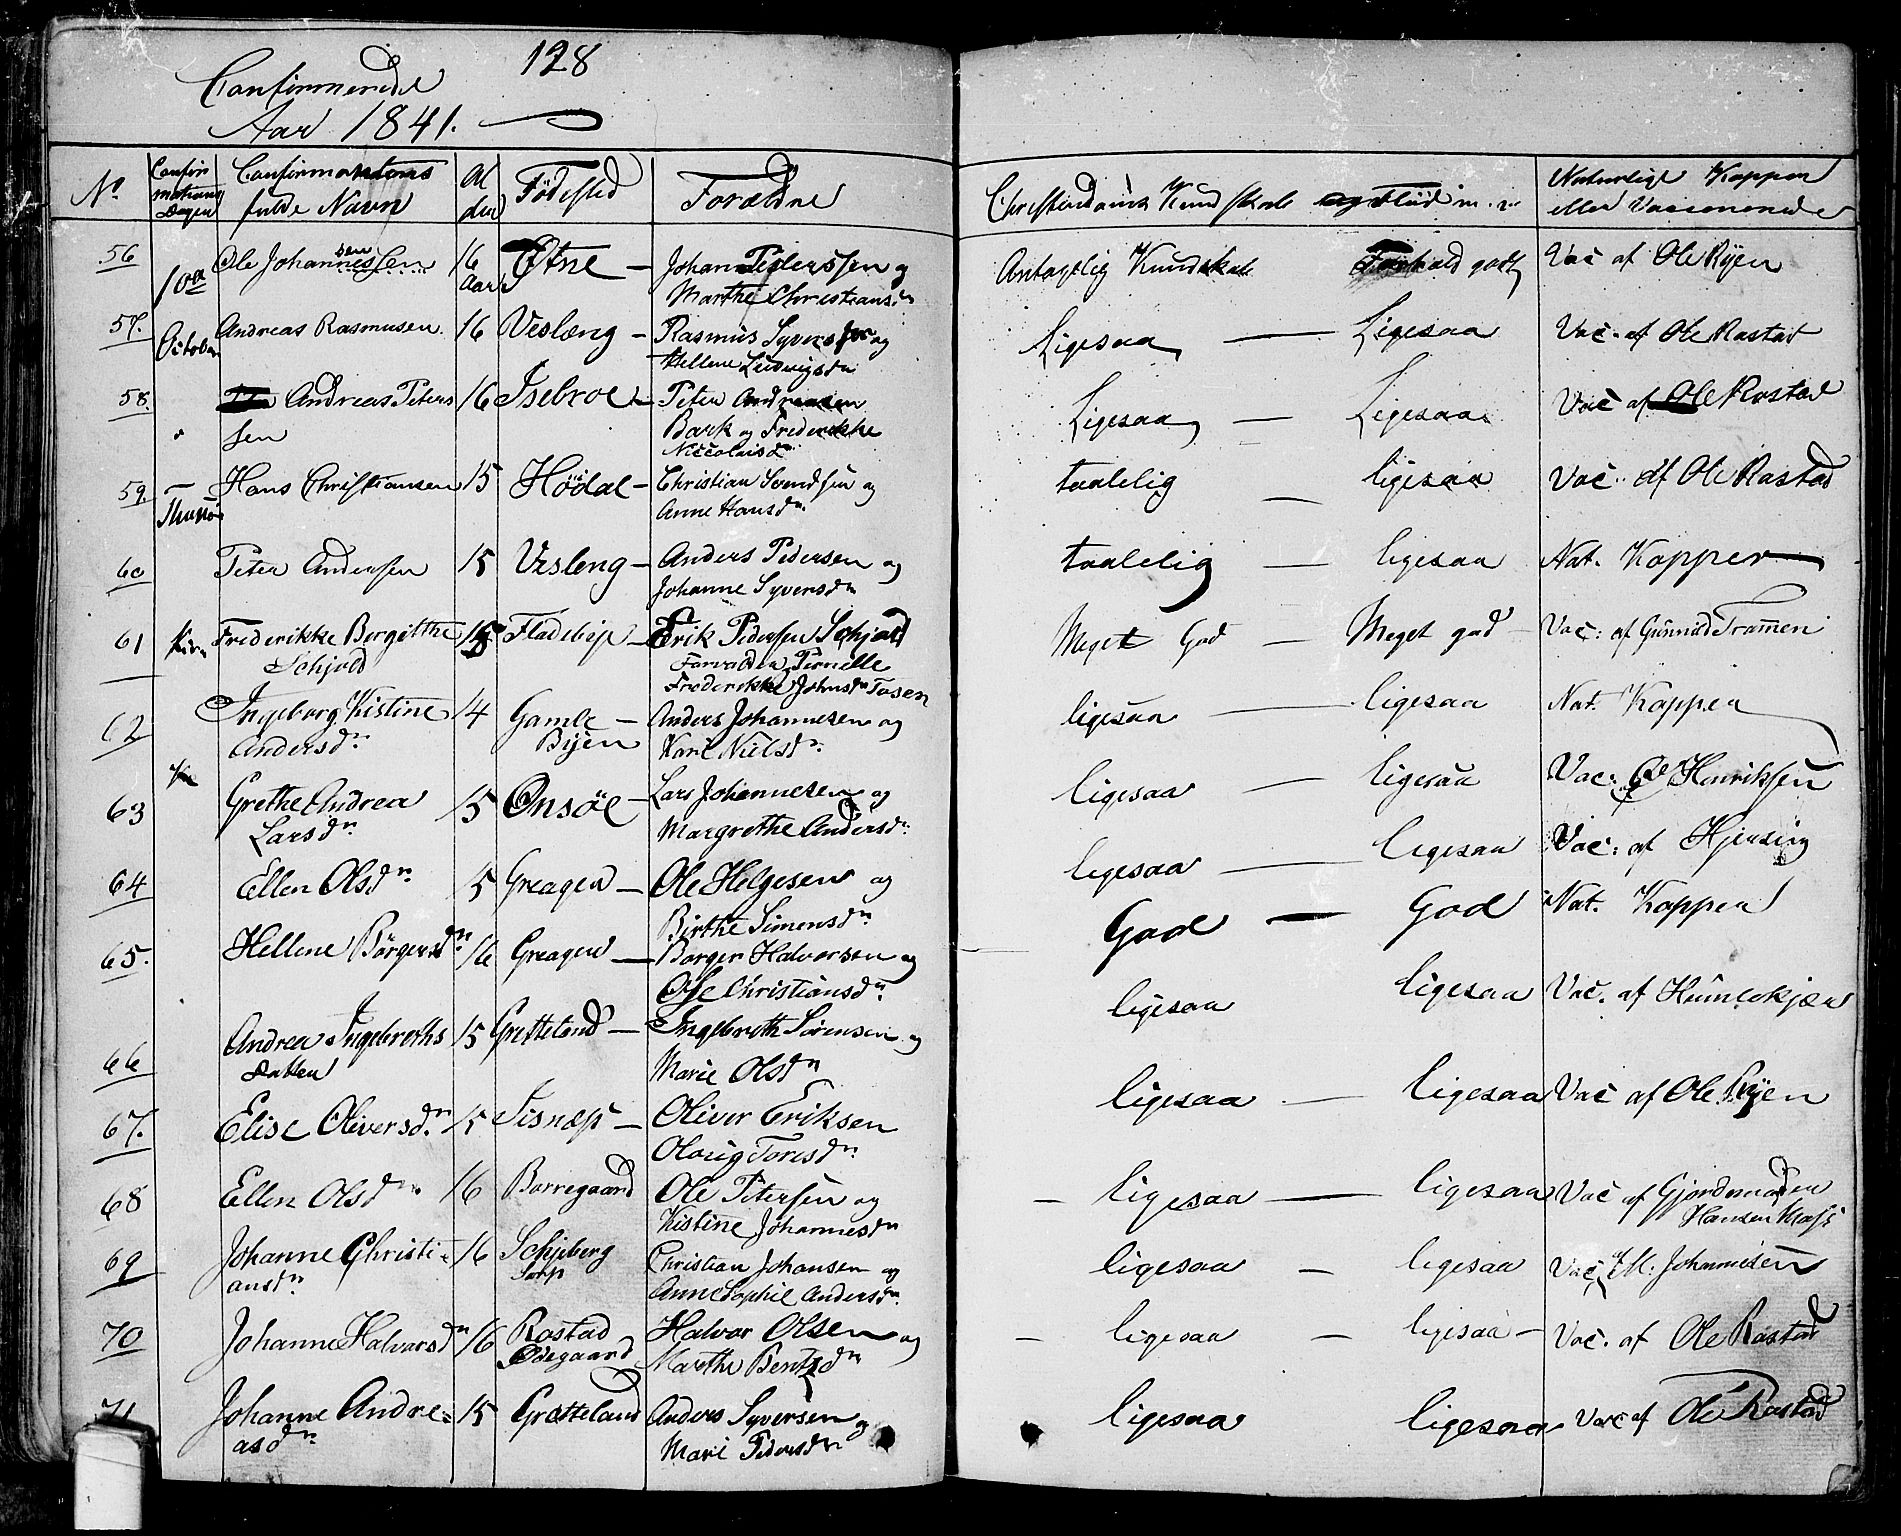 128
Confirmerede
Aar 1841.
No
Confir
mations
Dagen
Confirmantens
fulde Navn
Al
der
Födested
Forældre
Christendoms Kundskab og Flid m. m.
Naturlige Kopper
eller Vaccinerede
56
10de
Ole Johannessen
sen
16
Aar
Otne —
Johan Pederssen og
Marthe Christiansdn
Antagelig Kundskab
Forhold godt
Vac af Ole Ryen
57.
October
Andreas Rasmusen
16
Vislæng —
Rasmus Syversen og
Hellene Ludvigsdn
Ligesaa — Ligesaa
Vac. af Ole Rostad
58.
Andreas Peters
sen
16
Isebroe —
Peter Andreasen
Bark og Frederikke
Niccolaisd
Ligesaa — Ligesaa
Vac af Ole Rostad
59
Thunö
Hans Christiansen
15
Hödal —
Christian Svendsen og
Anne Hansdn
taalelig — ligesaa
Vac. af Ole Rastad
60
Peter Andersen
15
Visleng —
Anders Pedersen og
Johanne Syversdn
taalelig — ligesaa
Nat. Kopper
61
Frederikke Bergitthe
Schjold
Fladebye —
Erik Pedersen Schjold
Forvalter Pernelle
Frederikke Johnsdn Tosen
Meget God — Meget god —
Vac: af Gunnild Trammen
62
Ingeborg Kistine
Andersdn
14
Gamle —
Byen
Anders Johannesen og
Kari Nielsdn
ligesaa — ligesaa
Nat. Kopper
63
Grethe Andrea
Larsdn
15
Onsöe —
Lars Johannesen og
Margrethe Andersdn
ligesaa — ligesaa
Vac: af Henriksen
64
Ellen Olsdn
15
Greager —
Ole Helgesen og
Birthe Simensdn
ligesaa — ligesaa
Vac: af Hjensing
65.
Hellene Börgersdn
16
Greager —
Borger Halvorsen og
Olse Christiansdn
God — God
Nat. Kopper
66
Andrea Ingebreths
Datter
15
Gretteland —
Ingebreth Sörensen og
Marie Olsdn
ligesaa ligesaa
Vac. af Humlekjær
67.
Elise Oliversdn
15
Tisnæs —
Oliver Eriksen
Olaug Toresdn
ligesaa — ligesaa
Vac af Ole Ryen
68
Ellen Olsdn
16
Borregaard
Ole Petersen og
Kistine Johannesdn
— ligesaa — ligesaa
Vac af Gjordemoder
Hansen Moss
69
Johanne Christi
ansdn
16
Schjeberg
Sorp
Christian Johansen og
Anne Sophie Andersdn
ligesaa — ligesaa
Vac af M. Johannesen
70
Johanne Halvorsdn
16
Rostad
Ödegaard
Halvor Olsen og
Marthe Bentsdn
— ligesaa — ligesaa —
Vac. af Ole Rostad
71
Johanne Andre
asdn
15
Grotteland
Anders Syversen og
Mari Pedersdn
ligesaa ligesaa
Vac af Ole Rostad